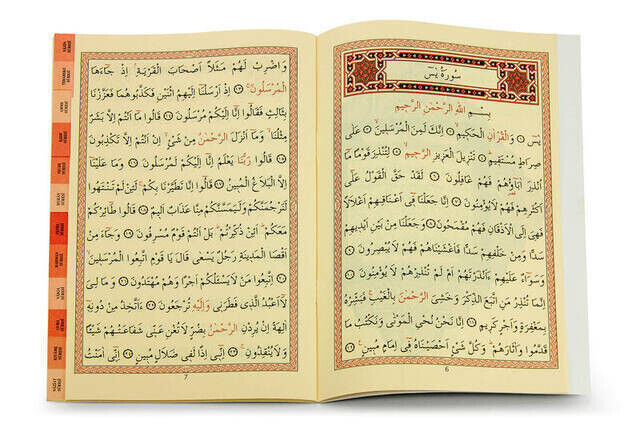 سورة يس
بسم الله الرحمن الرحيم
يس ﴿١﴾ والقرآن الحكيم ﴿٢﴾ انك لمن المرسلين ﴿٣﴾ على
صراط مستقيم ﴿٤﴾ تنزيل العزيز الرحيم ﴿٥﴾ لتنذر قوما ما
انذر آباؤهم فهم غافلون ﴿٦﴾ لقد حق القول على
اكثرهم فهم لا يؤمنون ﴿٧﴾ انا جعلنا في اعناقهم اغلالا
فهي الى الاذقان فهم مقمحون ﴿٨﴾ وجعلنا من بين ايديهم
سدا ومن خلفهم سدا فاغشيناهم فهم لا يبصرون ﴿٩﴾
وسواء عليهم ءانذرتهم ام لم تنذرهم لا يؤمنون ﴿١٠﴾
انما تنذر من اتبع الذكر وخشي الرحمن بالغيب فبشره
بمغفرة واجر كريم ﴿١١﴾ انا نحن نحي الموتى ونكتب ما
قدموا وآثارهم وكل شئ احصيناه في امام مبين ﴿١٢﴾
6
واضرب لهم مثلا اصحاب القرية اذ جاءها
المرسلون ﴿١٣﴾ اذ ارسلنا اليهم اثنين فكذبوهما فعززنا
بثالث فقالوا انا اليكم مرسلون ﴿١٤﴾ قالوا ما انتم الا بشر
مثلنا وما انزل الرحمن من شئ ان انتم الا تكذبون
﴿١٥﴾ قالوا ربنا يعلم انا اليكم لمرسلون ﴿١٦﴾ وما علينا
الا البلاغ المبين ﴿١٧﴾ قالوا انا تطيرنا بكم لئن لم تنتهوا
لنرجمنكم وليمسنكم منا عذاب اليم ﴿١٨﴾ قالوا طائركم
معكم ائن ذكرتم بل انتم قوم مسرفون ﴿١٩﴾ وجاء من
اقصا المدينة رجل يسعى قال يا قوم اتبعوا المرسلين
﴿٢٠﴾ اتبعوا من لا يسئلكم اجرا وهم مهتدون ﴿٢١﴾ وما لي
لا اعبد الذي فطرني واليه ترجعون ﴿٢٢﴾ ءاتخذ من دونه
آلهة ان يردن الرحمن بضر لا تغن عني شفاعتهم شيئا
ولا ينقذون ﴿٢٣﴾ اني اذا لفي ضلال مبين ﴿٢٤﴾ اني آمنت
7